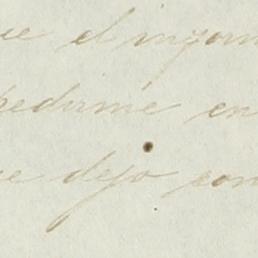 ue el inform
pedirme en
ue dejo con